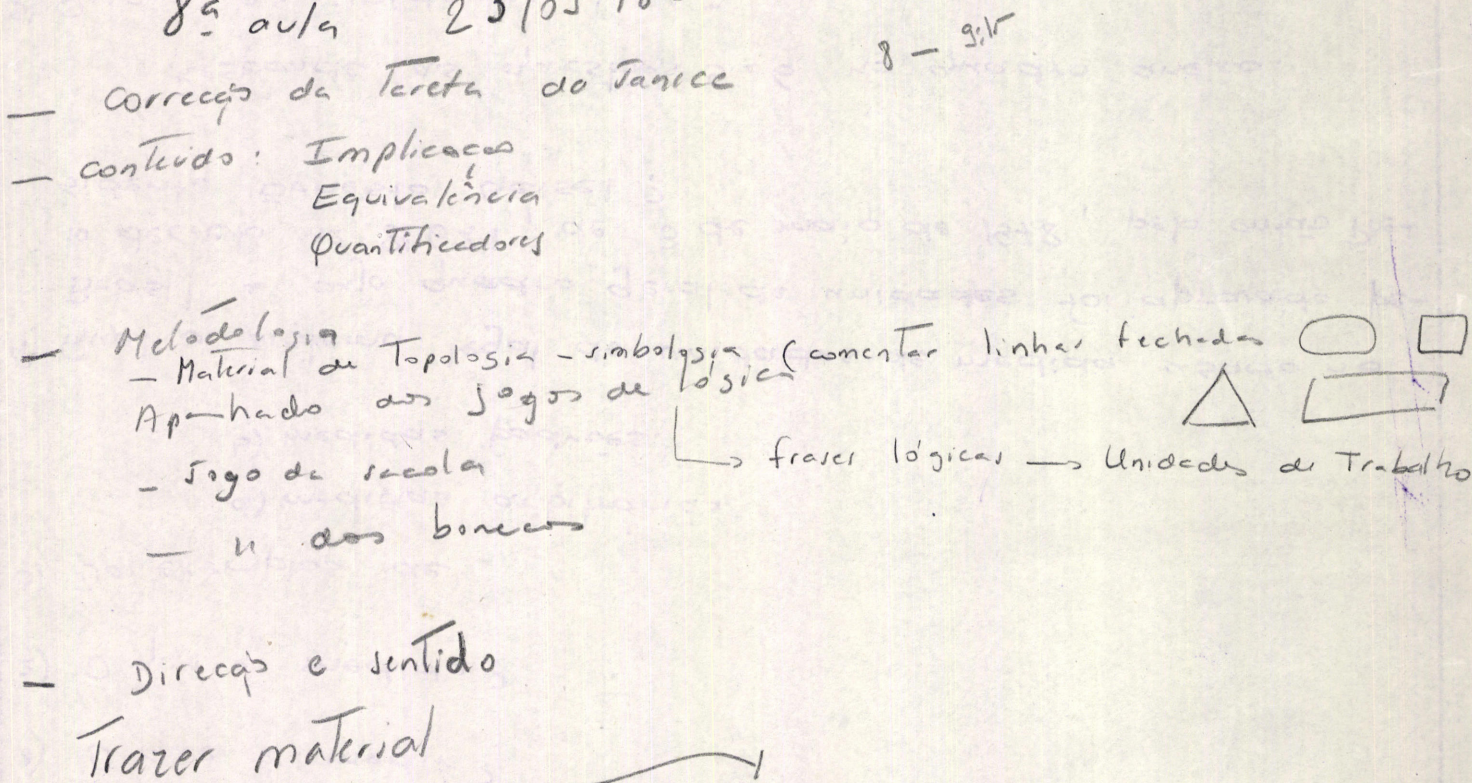 8ª aula
8 — 9:15
— Correcção da Tarefa do Janice
— conteúdo: Implicação
Equivalência
Quantificadores
— Metodologia
— Material de Topologia - simbologia (comentar linhas fechadas
Apanhado dos Jogos de lógica
→ frases lógicas → Unidades de Trabalho
- Jogo da sacola
— " dos bonecos
— Direção e sentido
Trazer material